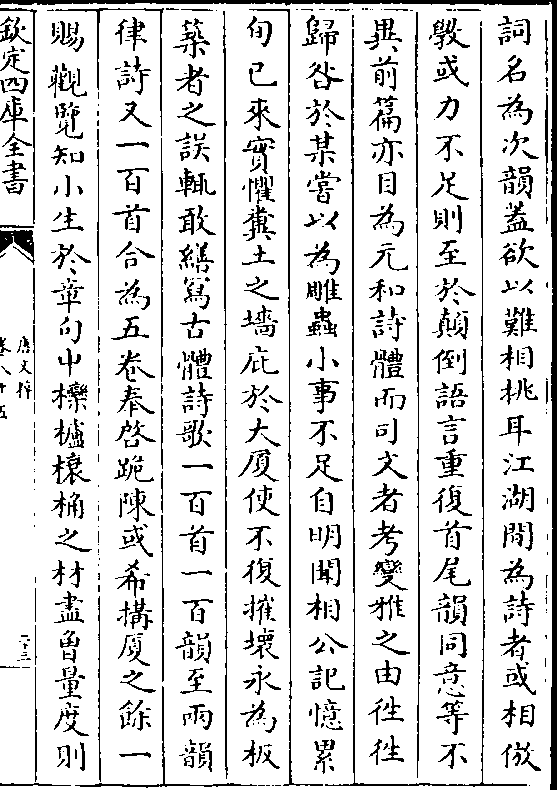 詞名為次韻葢欲以難相挑耳江湖間為詩者或相倣
斆或力不足則至於顛倒語言重復首尾韻同意等不
異前篇亦目為元和詩體而司文者考變雅之由徃徃
歸咎於某嘗以為雕蟲小事不足自明聞相公記憶累
旬已來實懼糞土之墻庇於大厦使不復摧壞永為板
築者之誤輒敢繕寫古體詩歌一百首一百韻至兩韻
律詩又一百首合為五卷奉啓跪陳或希搆厦之餘一
賜觀覽知小生於章句中欒櫨榱桷之材盡曽量度則
欽定四庫全書
唐文粹
卷八十五